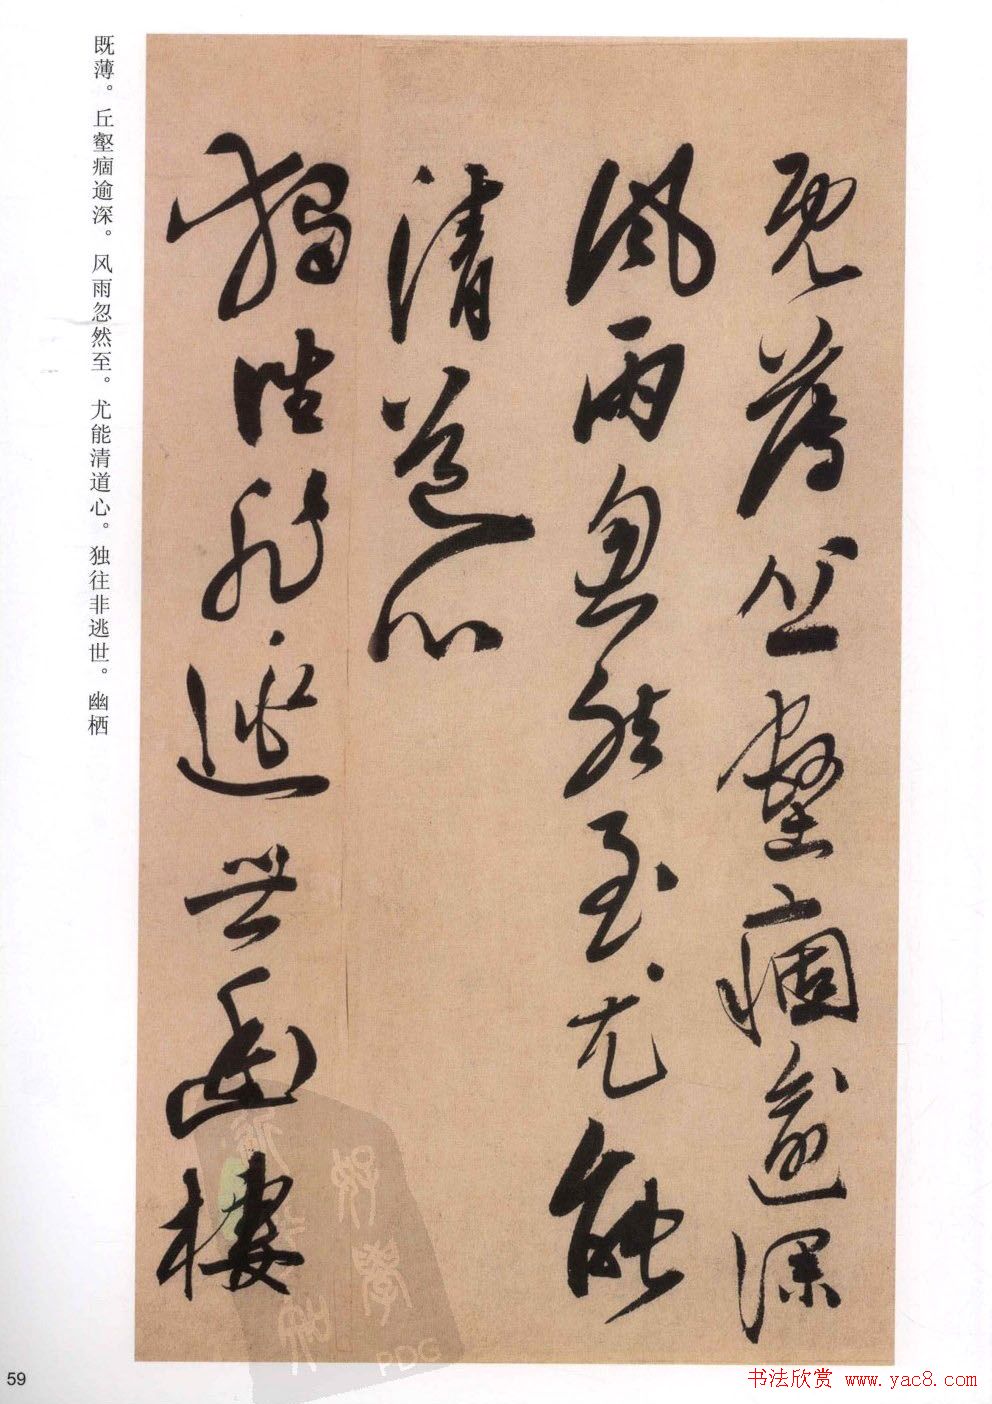 既薄丘壑痼逾深
風雨忽然至尤能
清道心
獨往非逃世幽棲
既薄。丘壑痼逾深。风雨忽然至。尤能清道心。独往非逃世。幽栖
PDG
59
书法欣赏 www.yac8.com